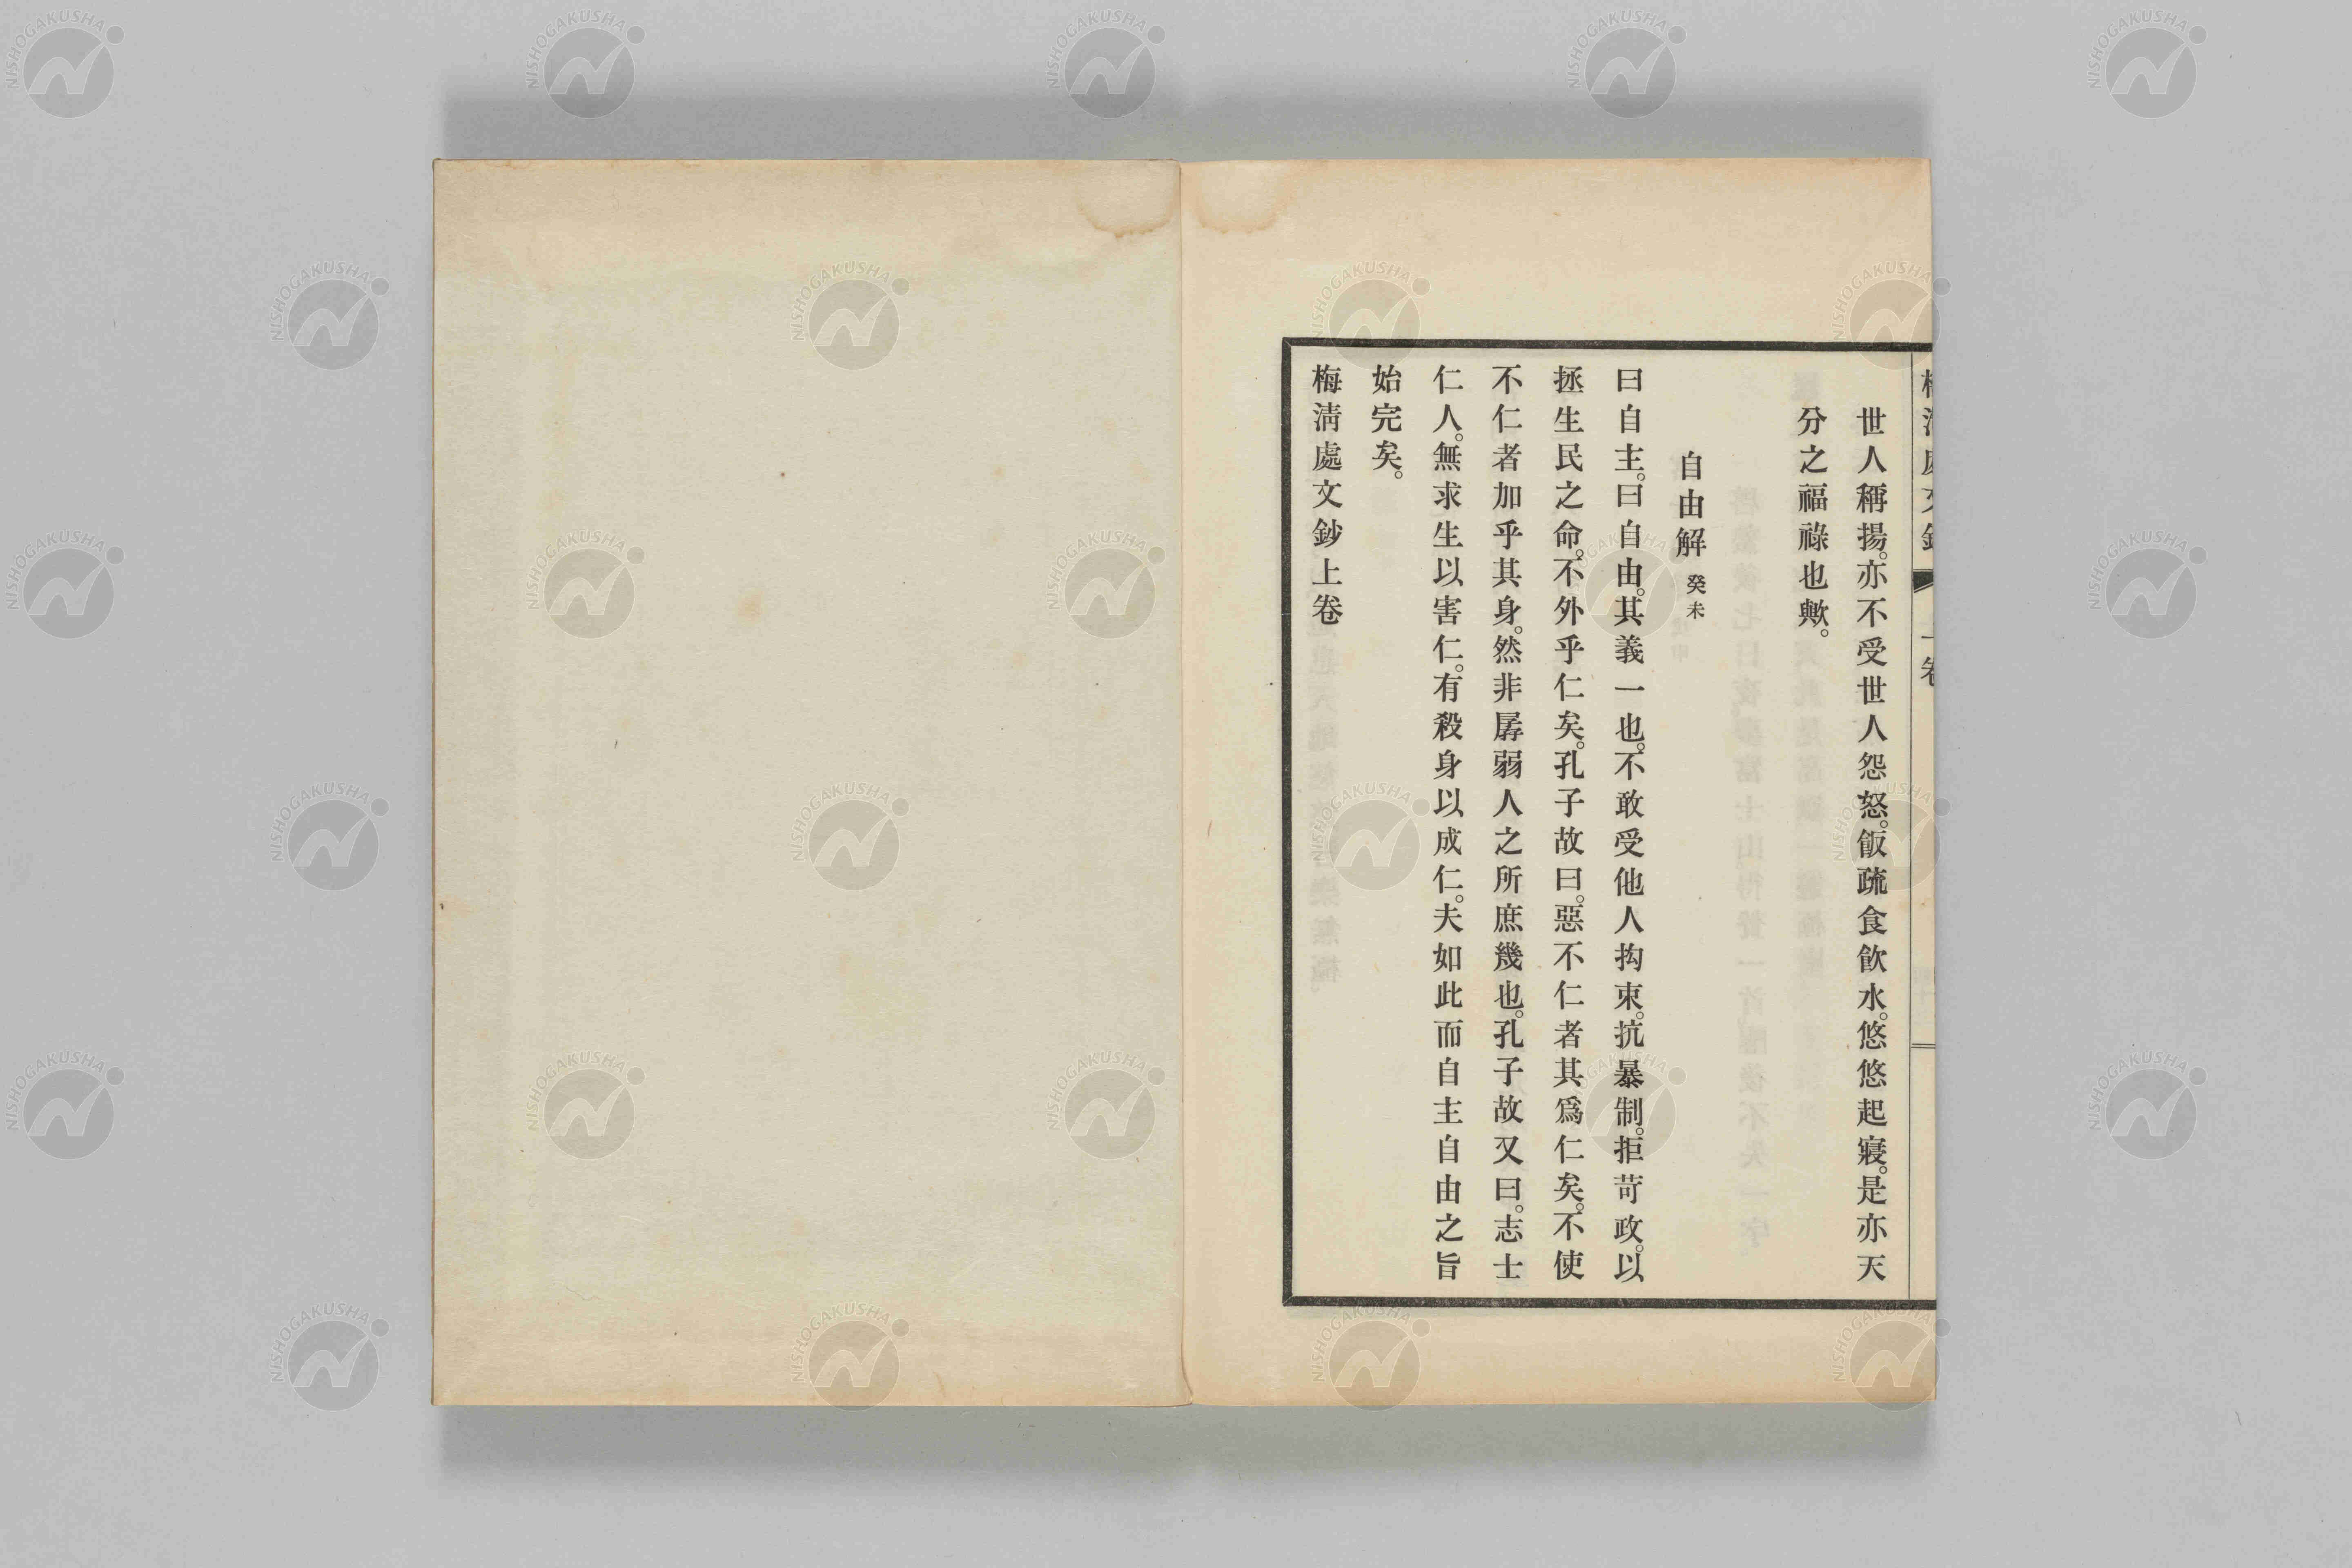 世人稱揚。亦不受世人怨怒。飯疏食飮水。悠悠起寢。是亦天
分之福祿也歟。
自由解 癸未
曰自主。曰自由。其義一也。不敢受他人拘束。抗暴制。拒苛政。以
拯生民之命。不外乎仁矣。孔子故曰。惡不仁者其爲仁矣。不使
不仁者加乎其身。然非孱弱人之所庶幾也。孔子故又曰。志士
仁人。無求生以害仁。有殺身以成仁。夫如此而自主自由之旨
始完矣。
梅淸處文鈔上卷